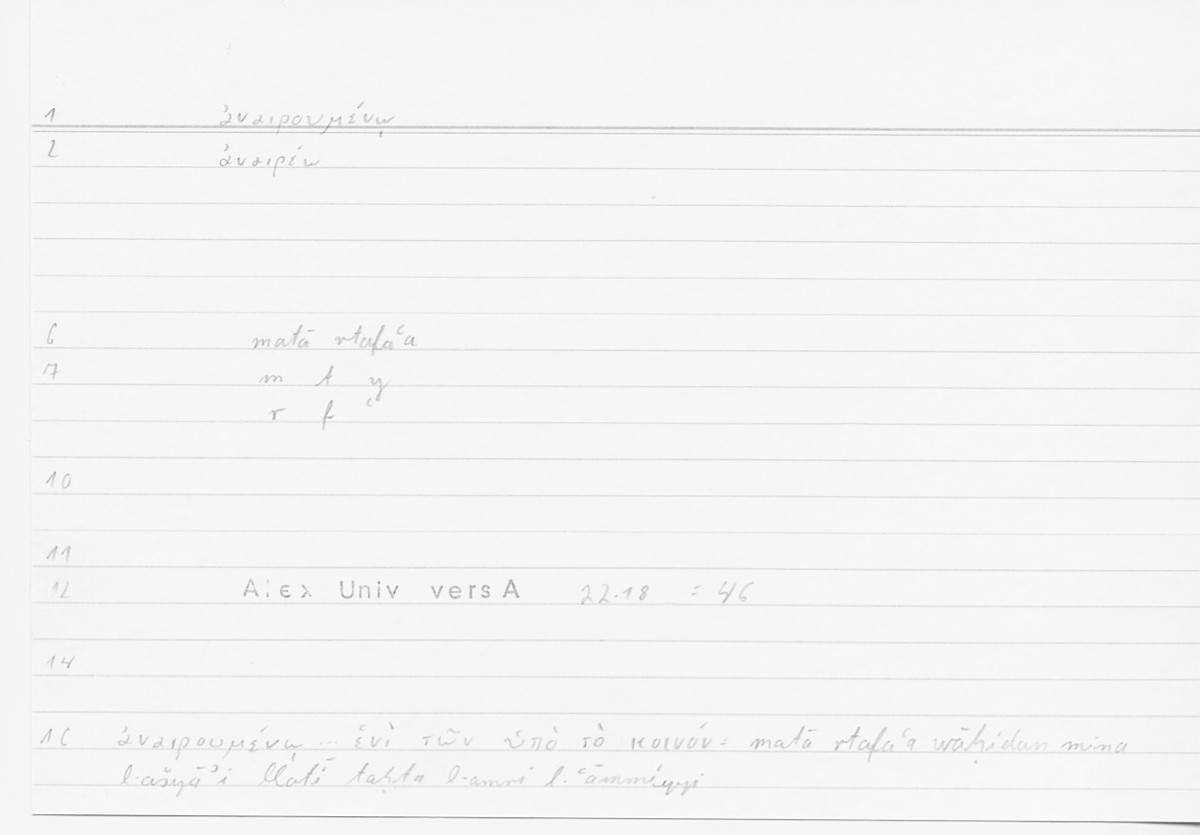 1 ἀναιρουμένῳ
2 ἀναιρέω
6 matā rtafaʿa
7 m t y
r f ʿ
10
11
12 Alex Univ vers A 22.18 = 46
14
16 ἀναιρουμένῳ ... ἑνὶ τῶν ὑπὸ τὸ κοινόν = matā rtafaʿa wāḥidun mina
l-ašyāʾi llatī taḥta l-amri l-ʿāmmiyyi